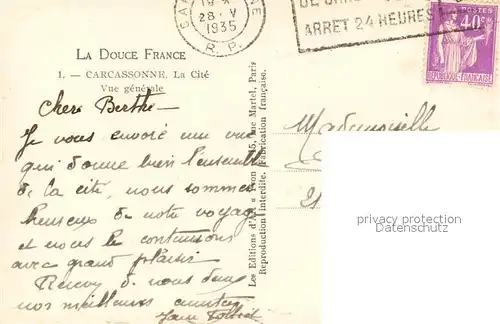 28 · V
1935
R. P.
ARRET 24 HEURES
POSTES
40c
REPUBLIQUE FRANÇAISE
LA DOUCE FRANCE
1. — CARCASSONNE. La Cité
Vue générale
Chère Berthe —
Je vous envoie une vue
qui donne bien l'ensemble
de la cité, nous sommes
heureux de notre voyage
et nous le continuons
avec grand plaisir
de nous deux
nos meilleures amitiés
Les Editions d'Art « Yvon » 15, rue Martel, Paris
Reproduction interdite. Fabrication française.
Mademoiselle
21
privacy protection